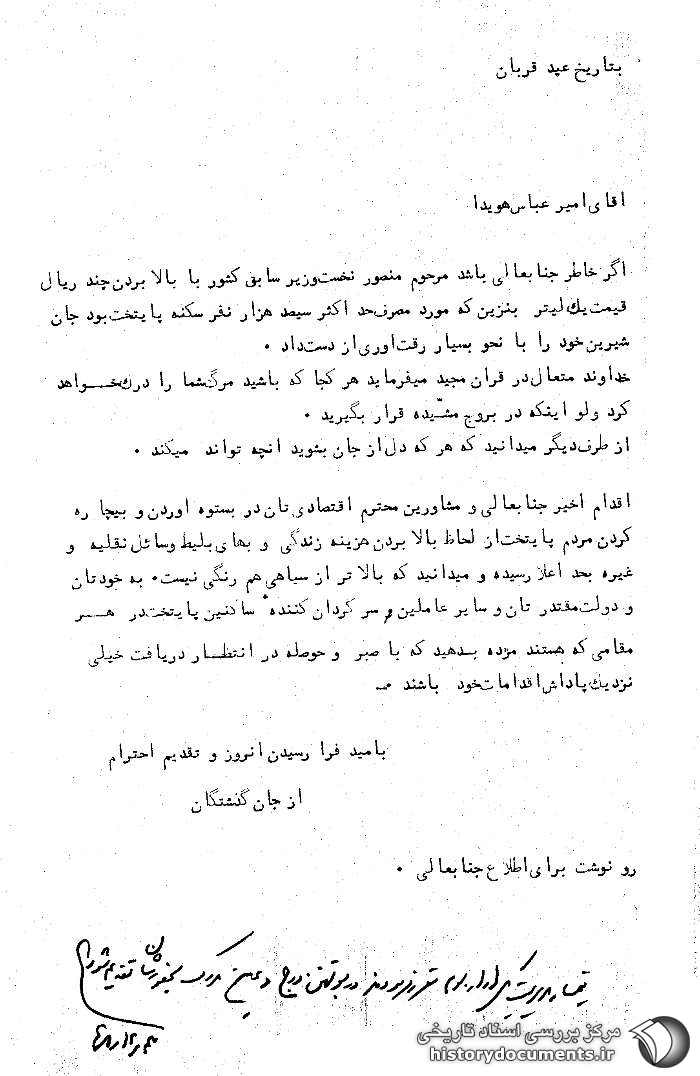 بتاریخ عید قربان
اقای امیر عباس هویدا
اگر خاطر جنابعالی باشد مرحوم منصور نخست‌وزیر سابق کشور با بالا بردن چند ریال
قیمت یك لیتر بنزین که مورد مصرف حد اکثر سیصد هزار نفر سکنه پایتخت بود جان
شیرین خود را با نحو بسیار رقت‌اوری از دست داد ۰
خداوند متعال در قران مجید میفرماید هر کجا که باشید مرگ شما را درك خـــواهد
کرد ولو اینکه در بروج مشیّده قرار بگیرید ۰
از طرف دیگر میدانید که هر که دل از جان بشوید انچه تواند میکند ۰
اقدام اخیر جنابعالی و مشاورین محترم اقتصادی تان در بستوه اوردن و بیچاره
کردن مردم پایتخت از لحاظ بالا بردن هزینه زندگی و بهای بلیط وسائل نقلیه و
غیره بحد اعلا رسیده و میدانید که بالا تر از سیاهی هم رنگی نیست۰ به خودتان
و دولت مقتدر تان و سایر عاملین و سر گردان کننده ساکنین پایتخت در هـــر
مقامی که هستند مژده بـدهید که با صبر و حوصله در انتظـار دریافت خیلی
نزدیك پاداش اقدامات خود باشند ۰ــ
بامید فرا رسیدن انروز و تقدیم احترام
از جان گذشتگان
رونوشت برای اطلاع جنابعالی ۰
مقرر فرمودند در بولتن درج و عین مدرک بحضورشان تقدیم شود
مرکز بررسی اسناد تاریخی
historydocuments.ir